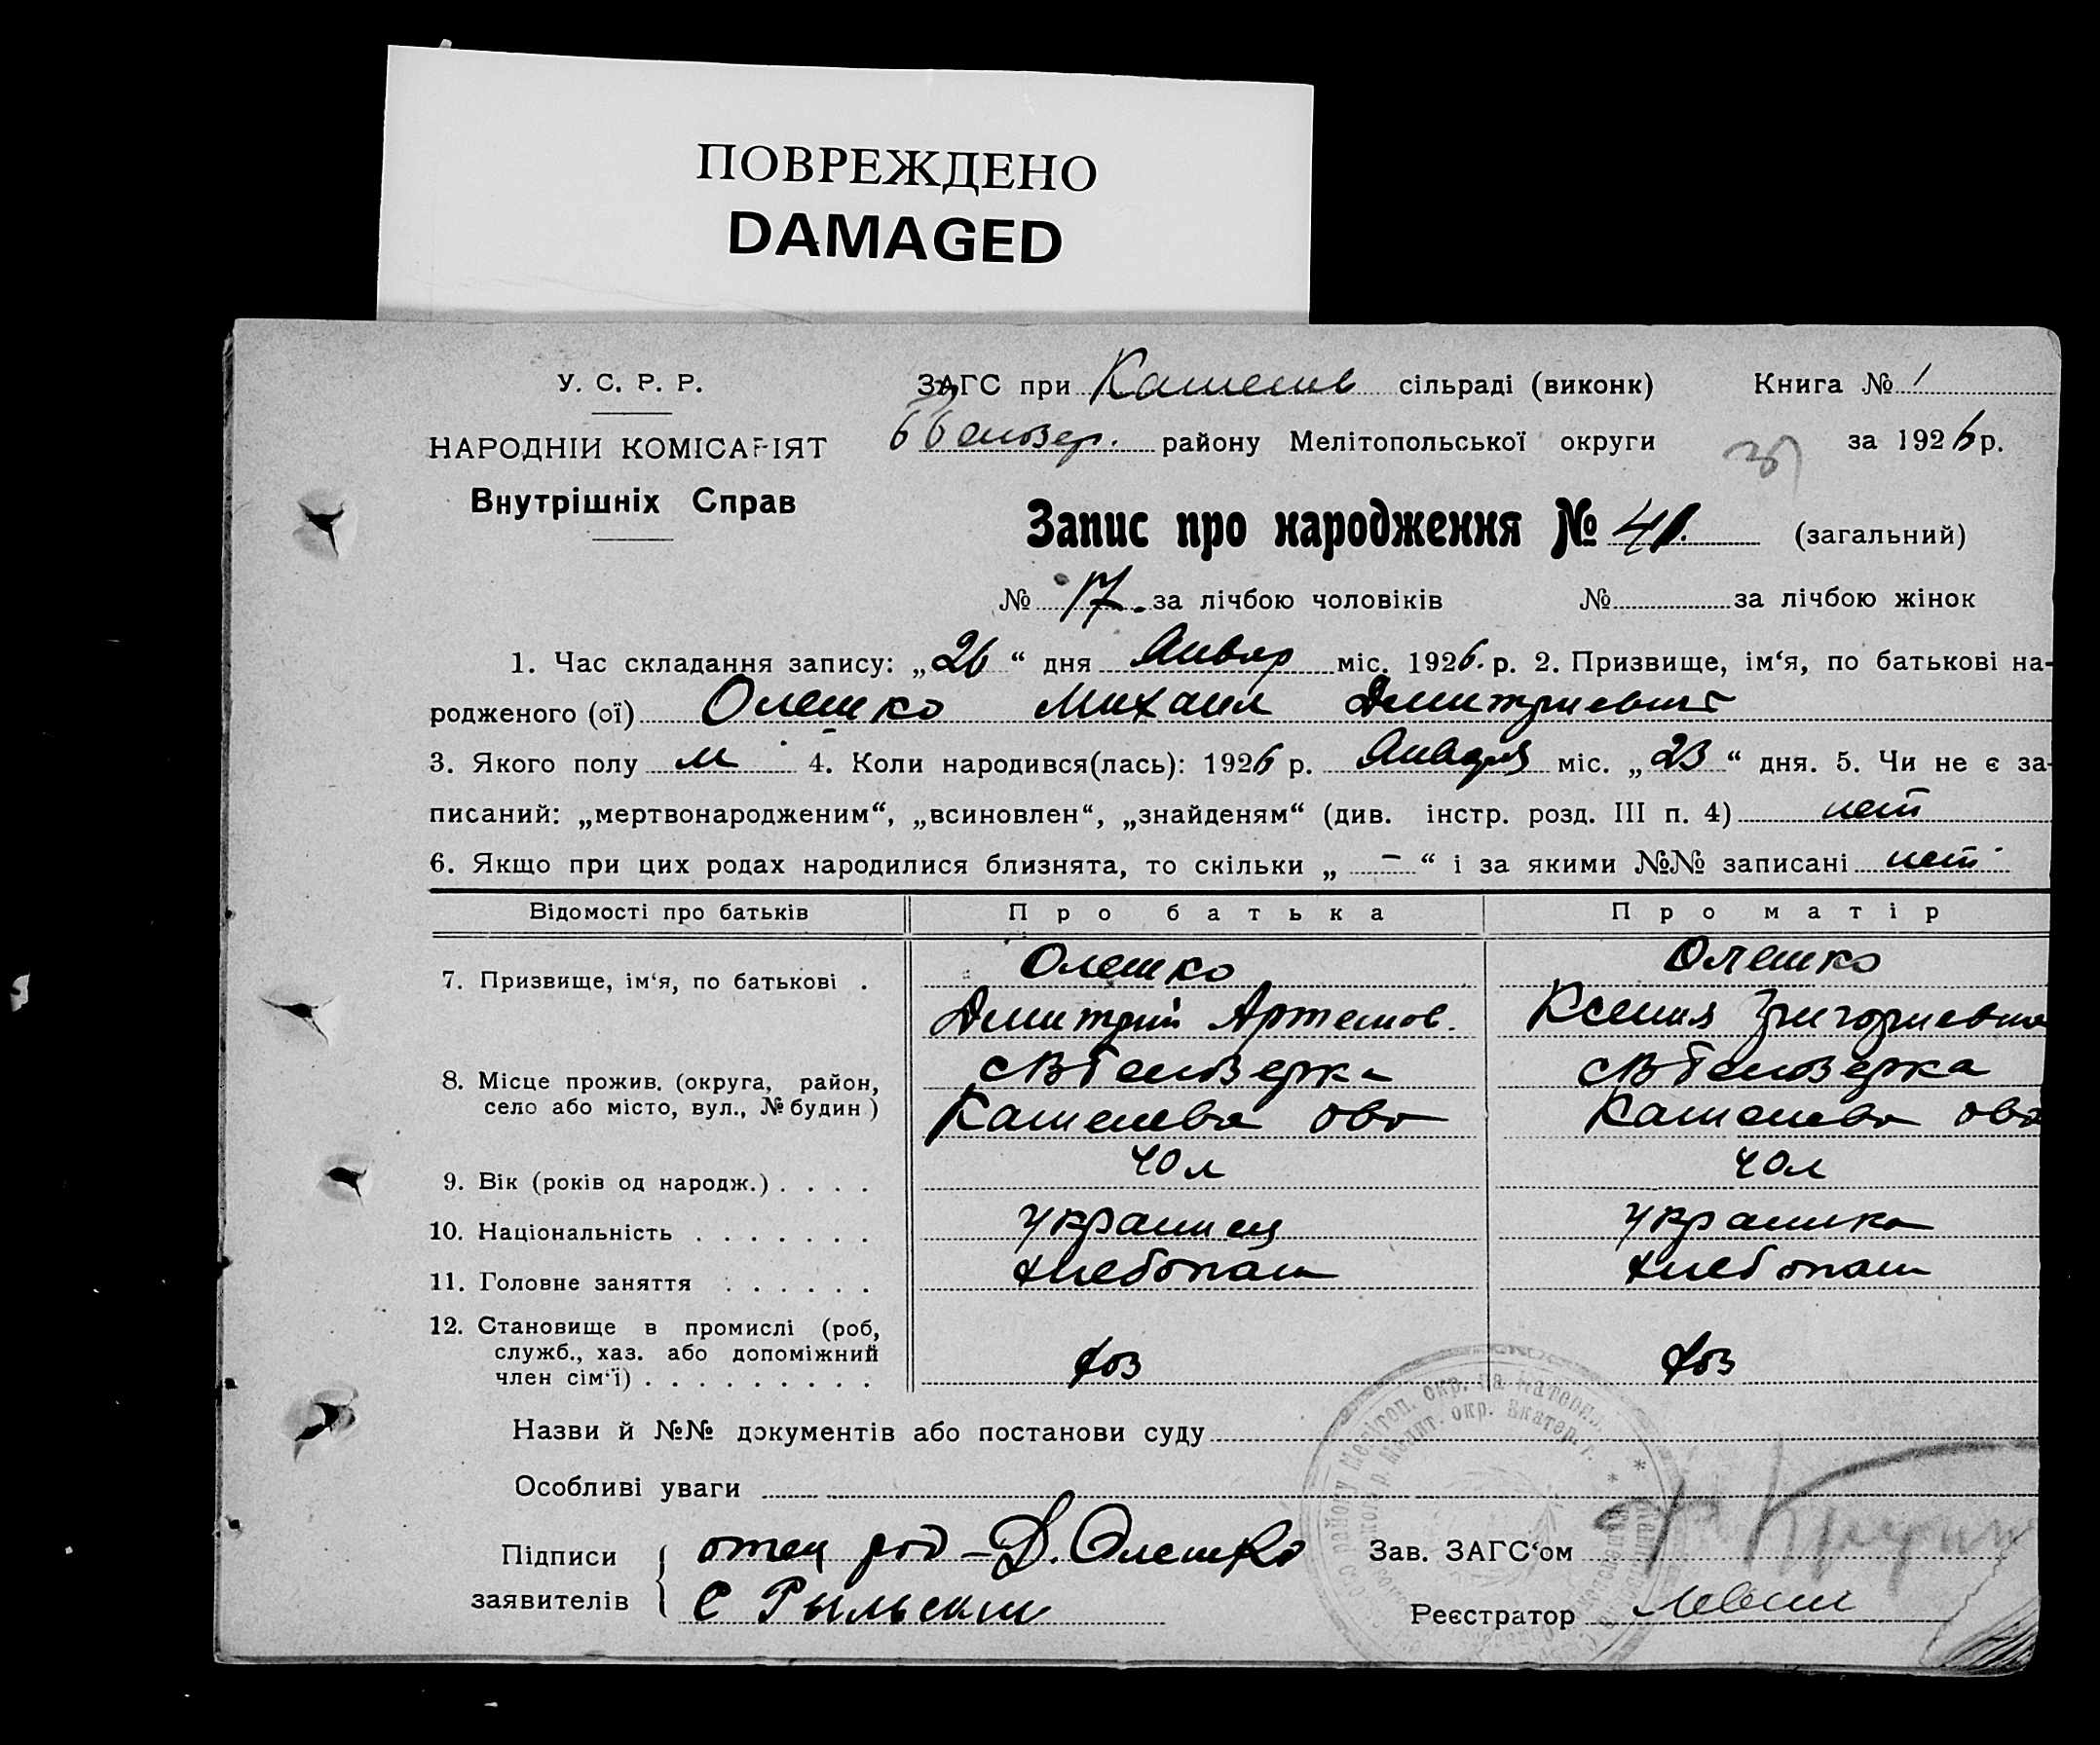 ПОВРЕЖДЕНО
DAMAGED
У. С. Р. Р.
НАРОДНІЙ КОМІСАРІЯТ
Внутрішніх Справ
ЗАГС при сільраді (виконк) Книга № 1
району Мелітопольської округи за 1926 р.
Запис про народження № 41. (загальний)
№ 17. за лічбою чоловіків № за лічбою жінок
1. Час складання запису: „26“ дня Январ міс. 1926. р. 2. Призвище, ім‘я, по батькові на-
родженого (ої) Олешко Михаил Дмитриевич
3. Якого полу м 4. Коли народився(лась): 1926 р. Января міс. „23“ дня. 5. Чи не є за-
писаний: „мертвонародженим“, „всиновлен“, „знайденям“ (див. інстр. розд. III п. 4) нет
6. Якщо при цих родах народилися близнята, то скільки „ — “ і за якими №№ записані нет
Відомості про батьків Про батька Про матір
7. Призвище, ім‘я, по батькові . Олешко Олешко
Дмитрий Артемов. Ксения Григориевна
8. Місце прожив. (округа, район, село або місто, вул., № будин) с Белозерка с Белозерка
9. Вік (років од народж.) . . . . 40 л 40 л
10. Національність . . . . . . . украинец украинка
11. Головне заняття . . . . . . хлебопаш хлебопаш
12. Становище в промислі (роб, служб., хаз. або допоміжний член сім‘ї) . . . . . . . . . хоз хоз
Назви й №№ документів або постанови суду
Особливі уваги
Підписи заявителів { отец Д. Олешко
С Рыльский
Зав. ЗАГС‘ом
Реєстратор